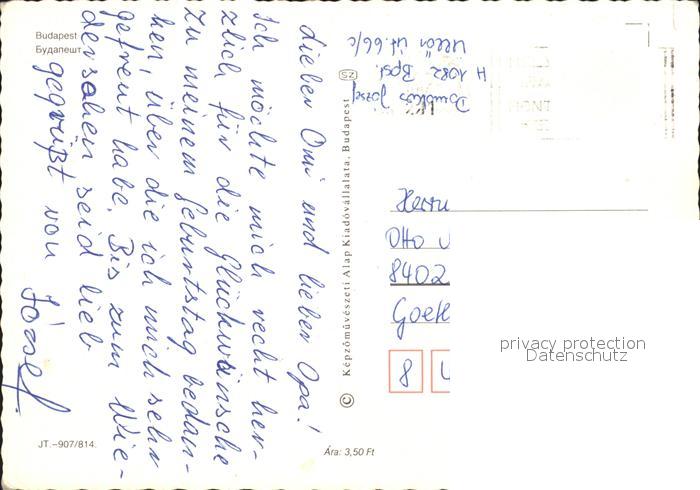 Budapest
Будапешт
Lieber Omi und lieber Opa!
Ich möchte mich recht her-
zlich für die Glückwünsche
zu meinem Geburtstag bedan-
ken, über die ich mich sehr
gefreut habe. Bis zum Wie-
dersehen seid lieb
gegrüßt von
József
JT.–907/814.
Ára: 3,50 Ft
© Képzőművészeti Alap Kiadóvállalata, Budapest
SZ
József
H 1082 Bpst.
Üllői út. 66/c
Herrn
Otto
8402
Goeth
8
privacy protection
Datenschutz